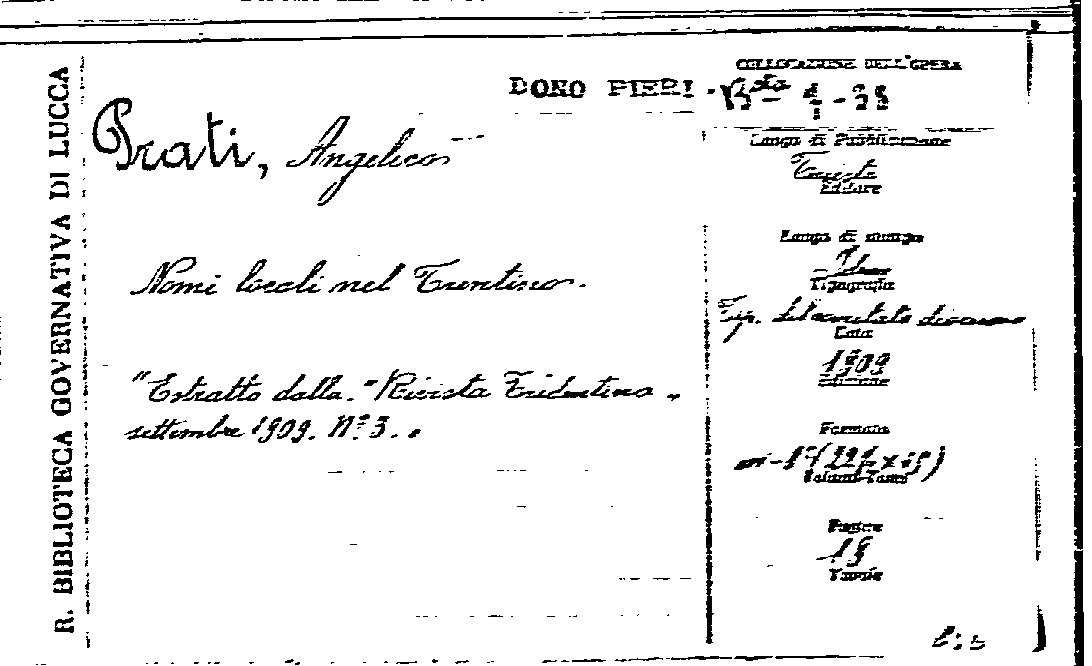 R. BIBLIOTECA GOVERNATIVA DI LUCCA
DONO PIERI
COLLOCAZIONE DELL'OPERA
B.ta
Prati, Angelico
Luogo di Pubblicazione
Trieste
Editore
Luogo di stampa
Idem
Tipografia
Nomi locali nel Trentino.
Tip. del
Data
1909
Edizione
"Estratto dalla "Rivista Tridentina"
settembre 1909. N.° 3.
Formato
in-8°
Volumi-Tomi
Pagine
19
Tavole